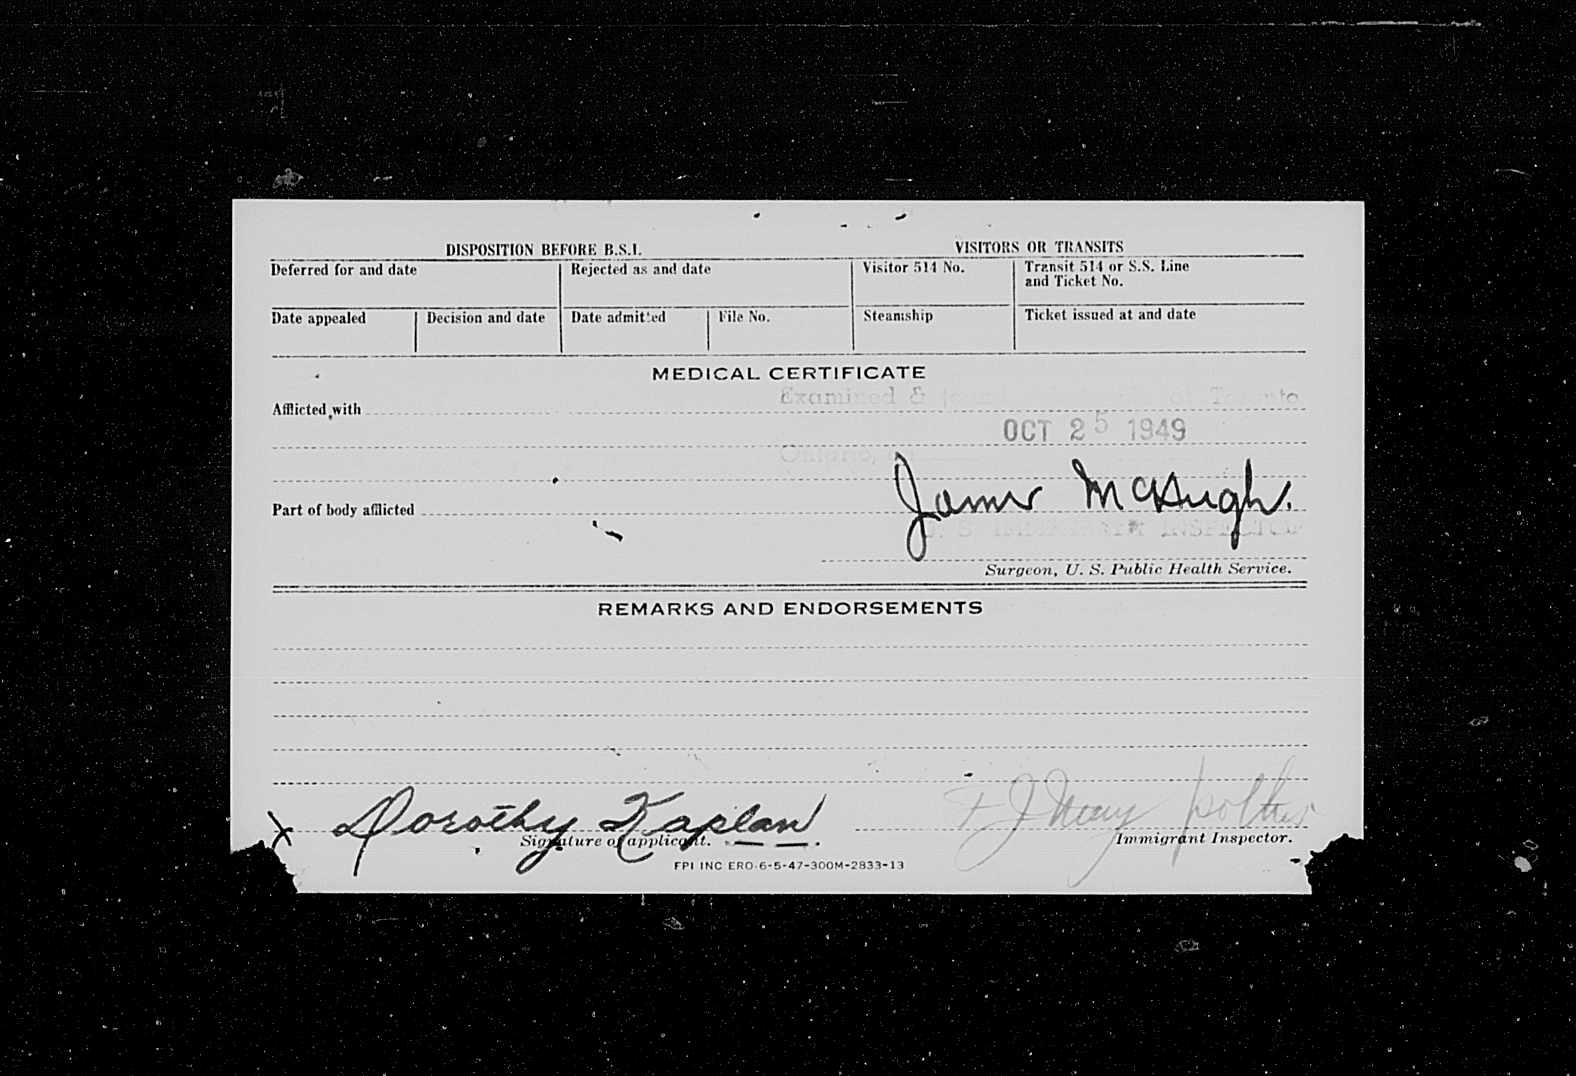 DISPOSITION BEFORE B.S.I.
VISITORS OR TRANSITS
Deferred for and date
Rejected as and date
Visitor 514 No.
Transit 514 or S.S. Line
and Ticket No.
Date appealed
Decision and date
Date admitted
File No.
Steamship
Ticket issued at and date
MEDICAL CERTIFICATE
Examined & of Toronto
Afflicted with
OCT 25 1949
Ontario, on
James McHugh.
Part of body afflicted
U. S. IMMIGRANT INSPECTOR
Surgeon, U. S. Public Health Service.
REMARKS AND ENDORSEMENTS
X Dorothy Kaplan
Signature of applicant.
Immigrant Inspector.
FPI INC ERO-6-5-47-300M-2833-13